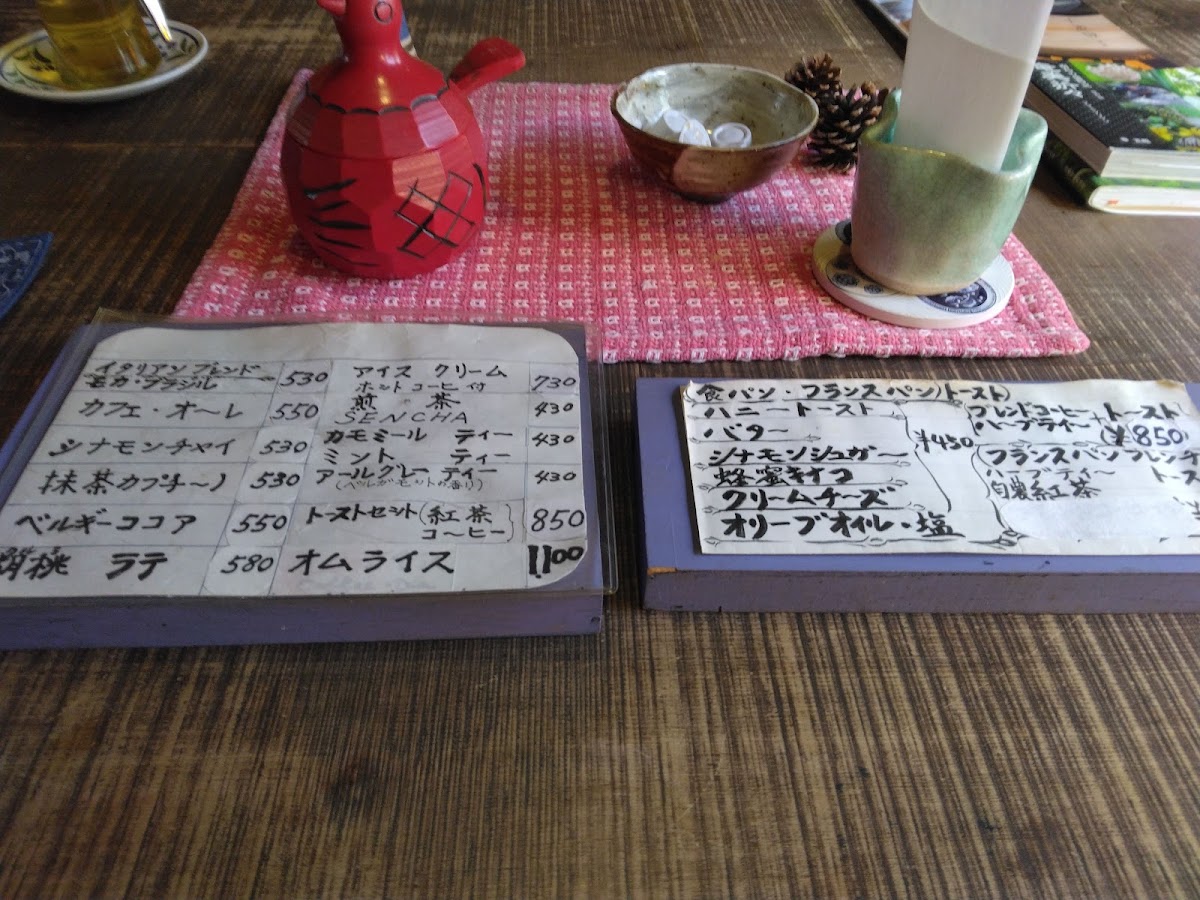 イタリアンブレンド
モカ・ブラジル 530
カフェ・オ〜レ 550
シナモンチャイ 530
抹茶カプチ〜ノ 530
ベルギーココア 550
胡桃 ラテ 580
アイス クリーム
ホットコーヒー付 730
煎茶
SENCHA 430
カモミール ティー
ミント ティー 430
アールグレー ティー
(ベルガモットの香り) 430
トーストセット(紅茶
コ〜ヒー) 850
オムライス 1100
食パン・フランスパン(トースト)
ハニートースト
バター
シナモンシュガ〜
クリームチーズ
オリーブオイル・塩
¥450
ブレンドコーヒー トースト
(¥850)
フランスパンフレンチ
ハーブティ〜
紅茶